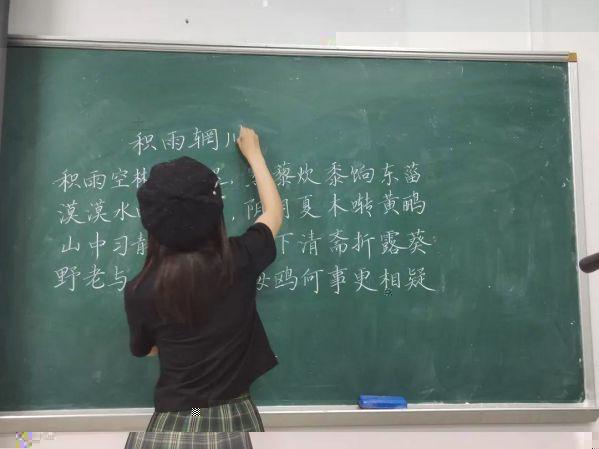 积雨辋川
积雨空林 藜炊黍饷东菑
漠漠水 , 阴阴夏木啭黄鹂
山中习静 下清斋折露葵
野老与 海鸥何事更相疑